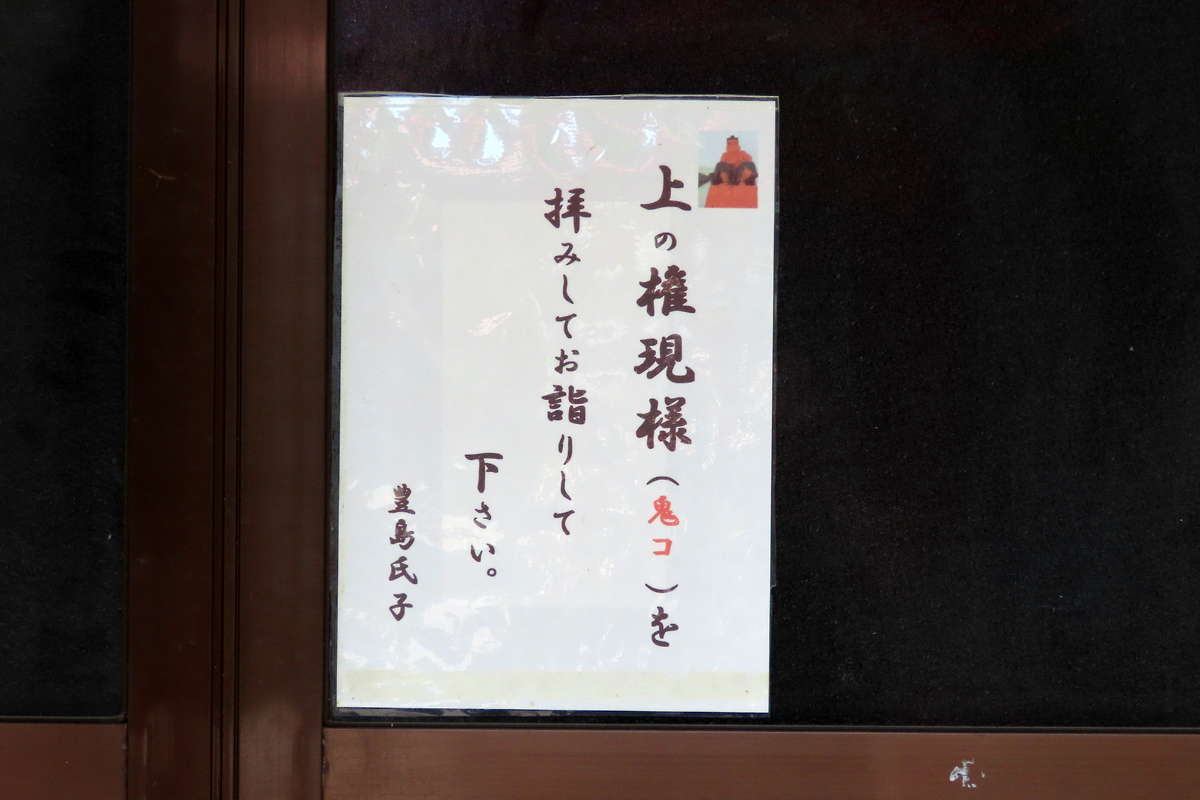 上の権現様(鬼コ)を
拝みしてお詣りして
下さい。
豊島氏子